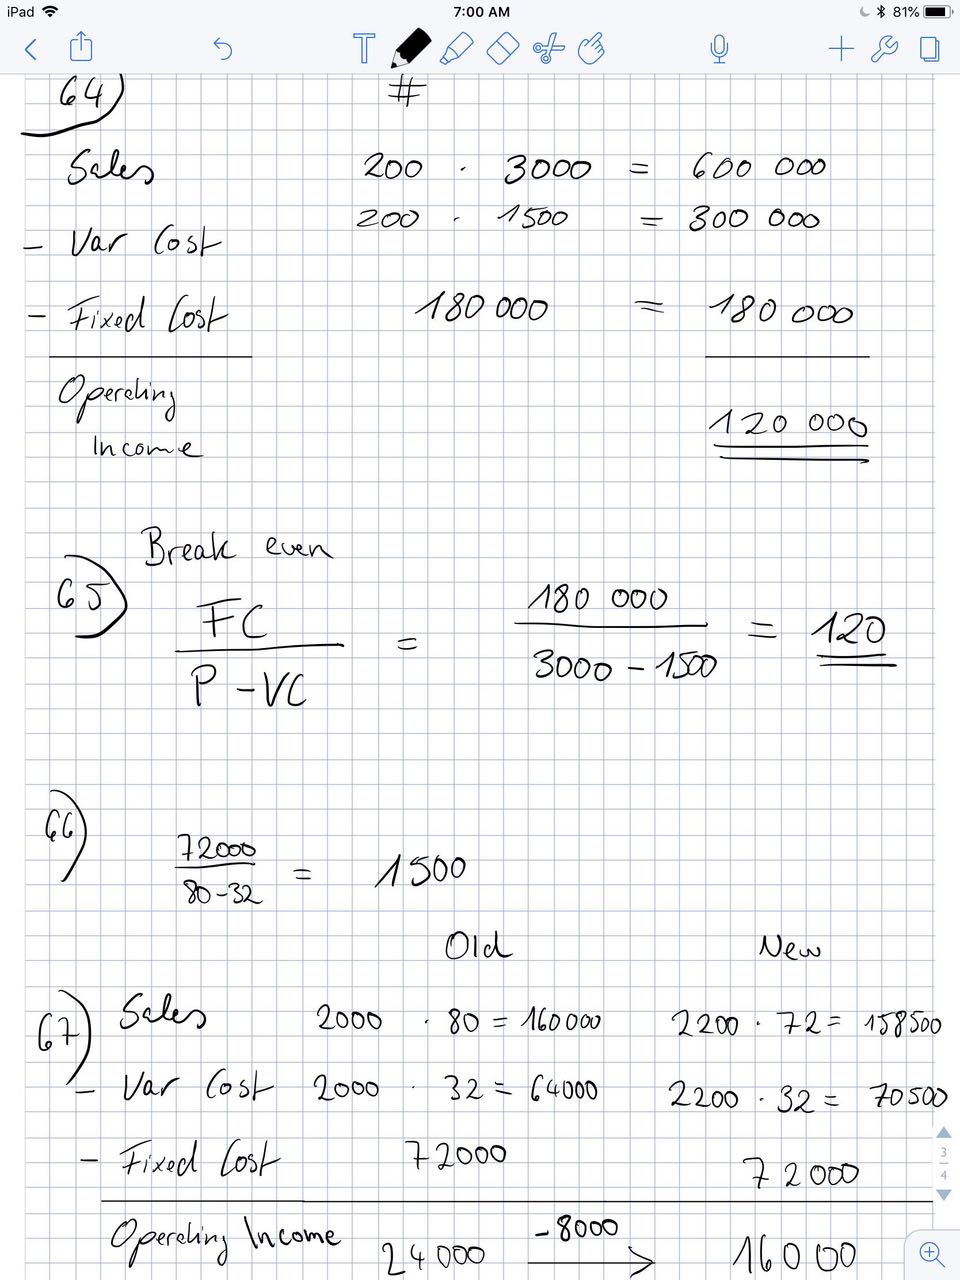 iPad 7:00 AM 81%
T
64) #
Sales 200 · 3000 = 600 000
200 · 1500 = 300 000
- Var Cost
- Fixed Cost 180 000 = 180 000
Operating
Income 120 000
Break even
65) FC / P - VC = 180 000 / 3000 - 1500 = 120
66) 72000 / 80-32 = 1500
Old New
67) Sales 2000 · 80 = 160000 2200 · 72 = 158500
- Var Cost 2000 · 32 = 64000 2200 · 32 = 70500
- Fixed Cost 72000 72000
Operating Income 24000 -8000 → 16000
3
4